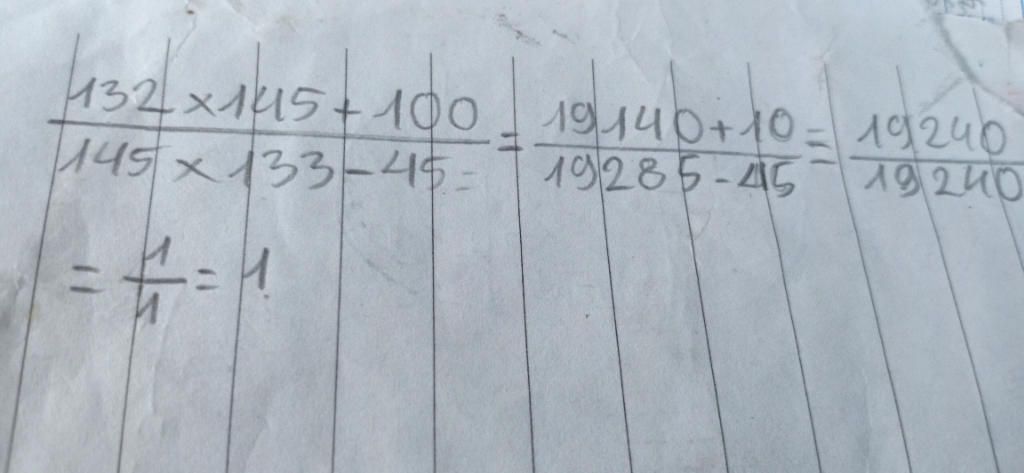 132 × 145 + 100 / 145 × 133 - 45 = = 19140 + 10 / 19285 - 45 = 19240 / 19240
= 1 / 1 = 1